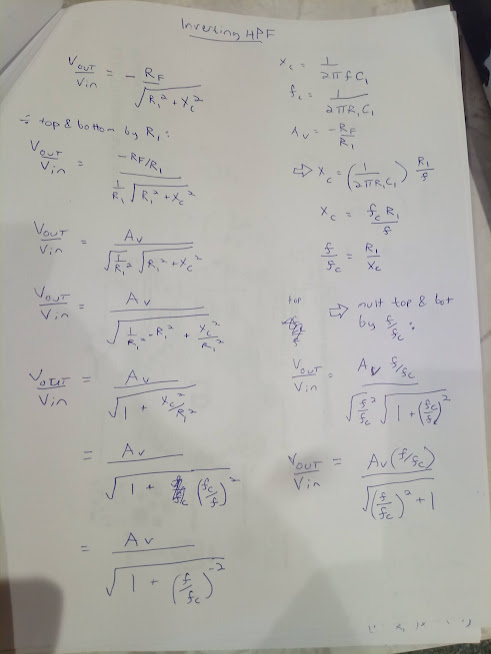 Inverting HPF
Vout/Vin = - RF/√(R₁² + Xc²)
÷ top & bottom by R₁:
Vout/Vin = -RF/R₁ / (1/R₁ √(R₁² + Xc²))
Vout/Vin = Av / (√(1/R₁²) √(R₁² + Xc²))
Vout/Vin = Av / √(1/R₁² - R₁² + Xc²/R₁²)
Vout/Vin = Av / √(1 + Xc²/R₁²)
= Av / √(1 + (fc/f)²)
= Av / √(1 + (f/fc)⁻²)
Xc = 1/(2πfC₁)
fc = 1/(2πR₁C₁)
Av = -RF/R₁
⇒ Xc = (1/(2πR₁C₁)) R₁/f
Xc = fc R₁/f
f/fc = R₁/Xc
top
⇒ mult top & bot
by f/fc:
Vout/Vin = Av f/fc / (√(f/fc²) √(1 + (fc/f)²))
Vout/Vin = Av(f/fc) / √((f/fc)² + 1)